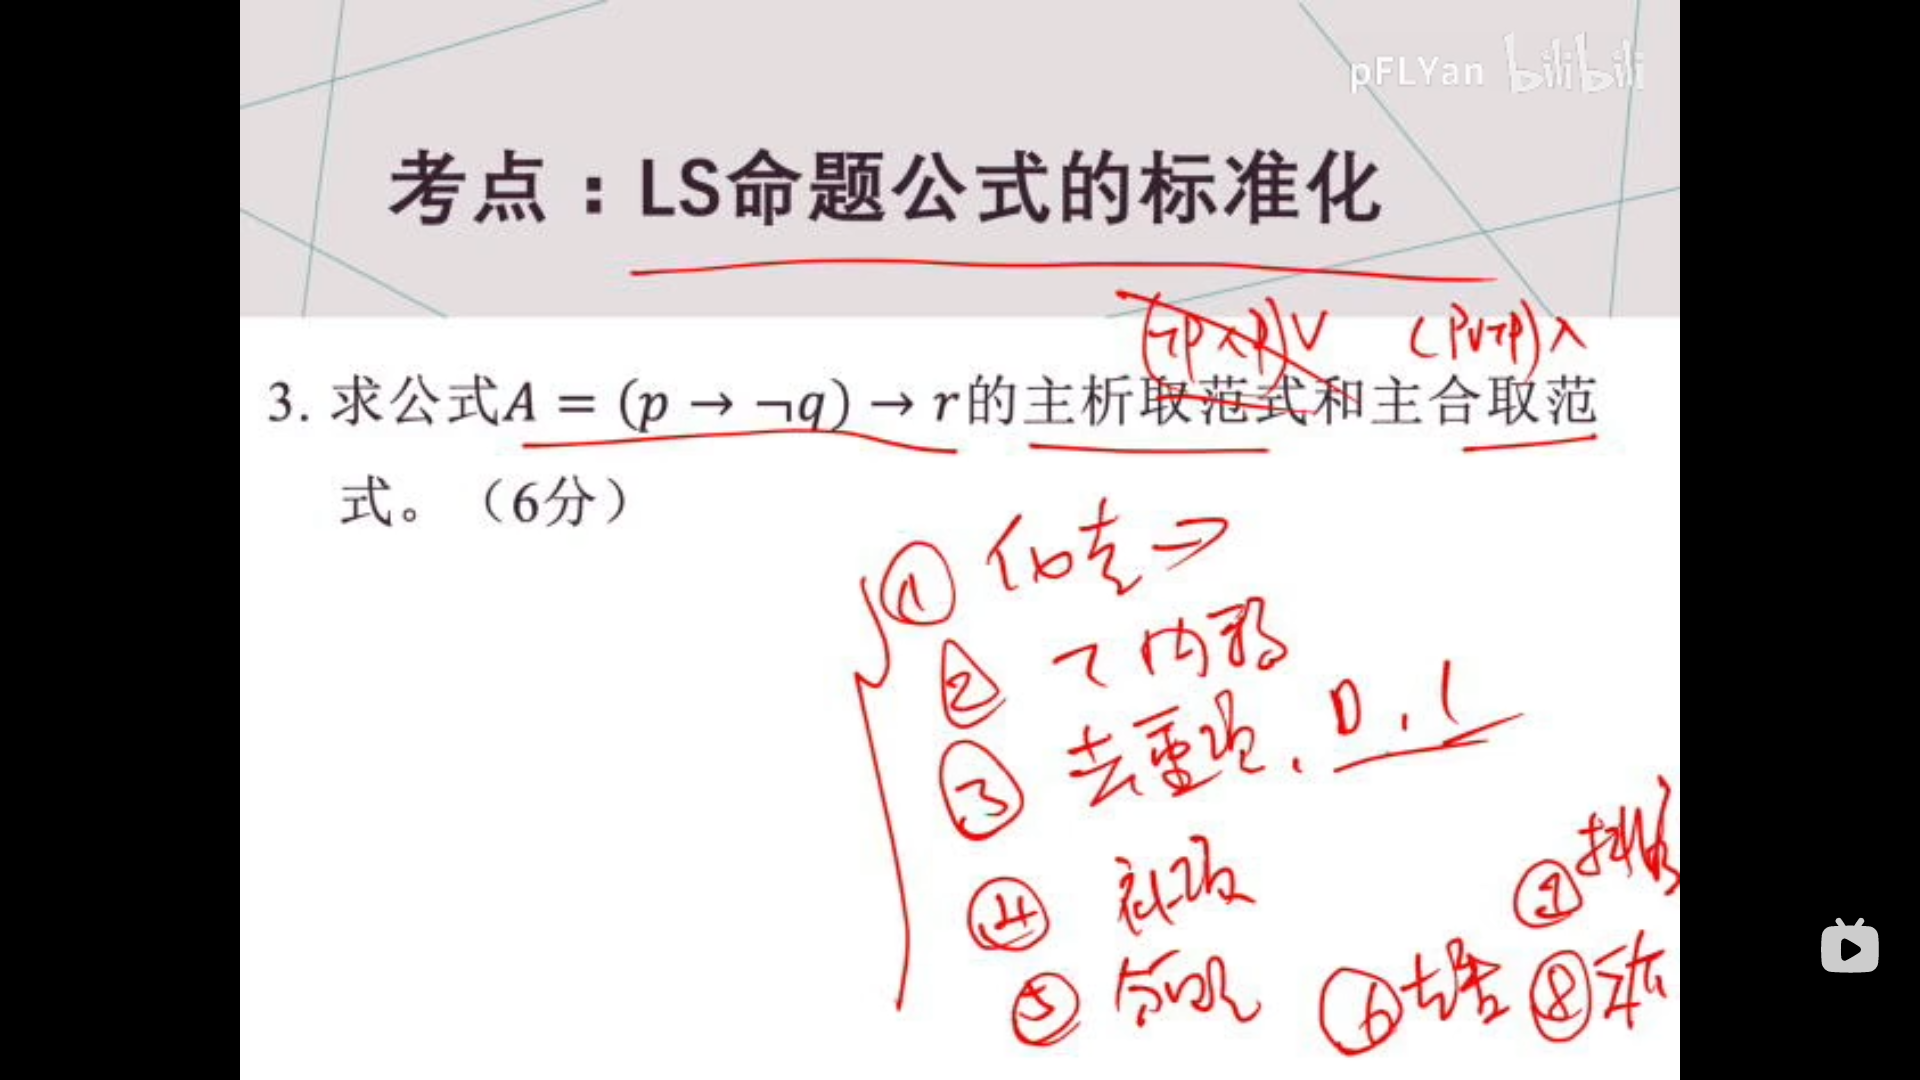 pFLYan bilibili
考点：LS命题公式的标准化
(¬p∧p)∨ (p∨¬p)∧
3. 求公式A = (p → ¬q) → r的主析取范式和主合取范
式。（6分）
① 化去→
② ¬内移
③ 去重项、0、1
④ 补项
⑤ 合取
⑥ ⑧